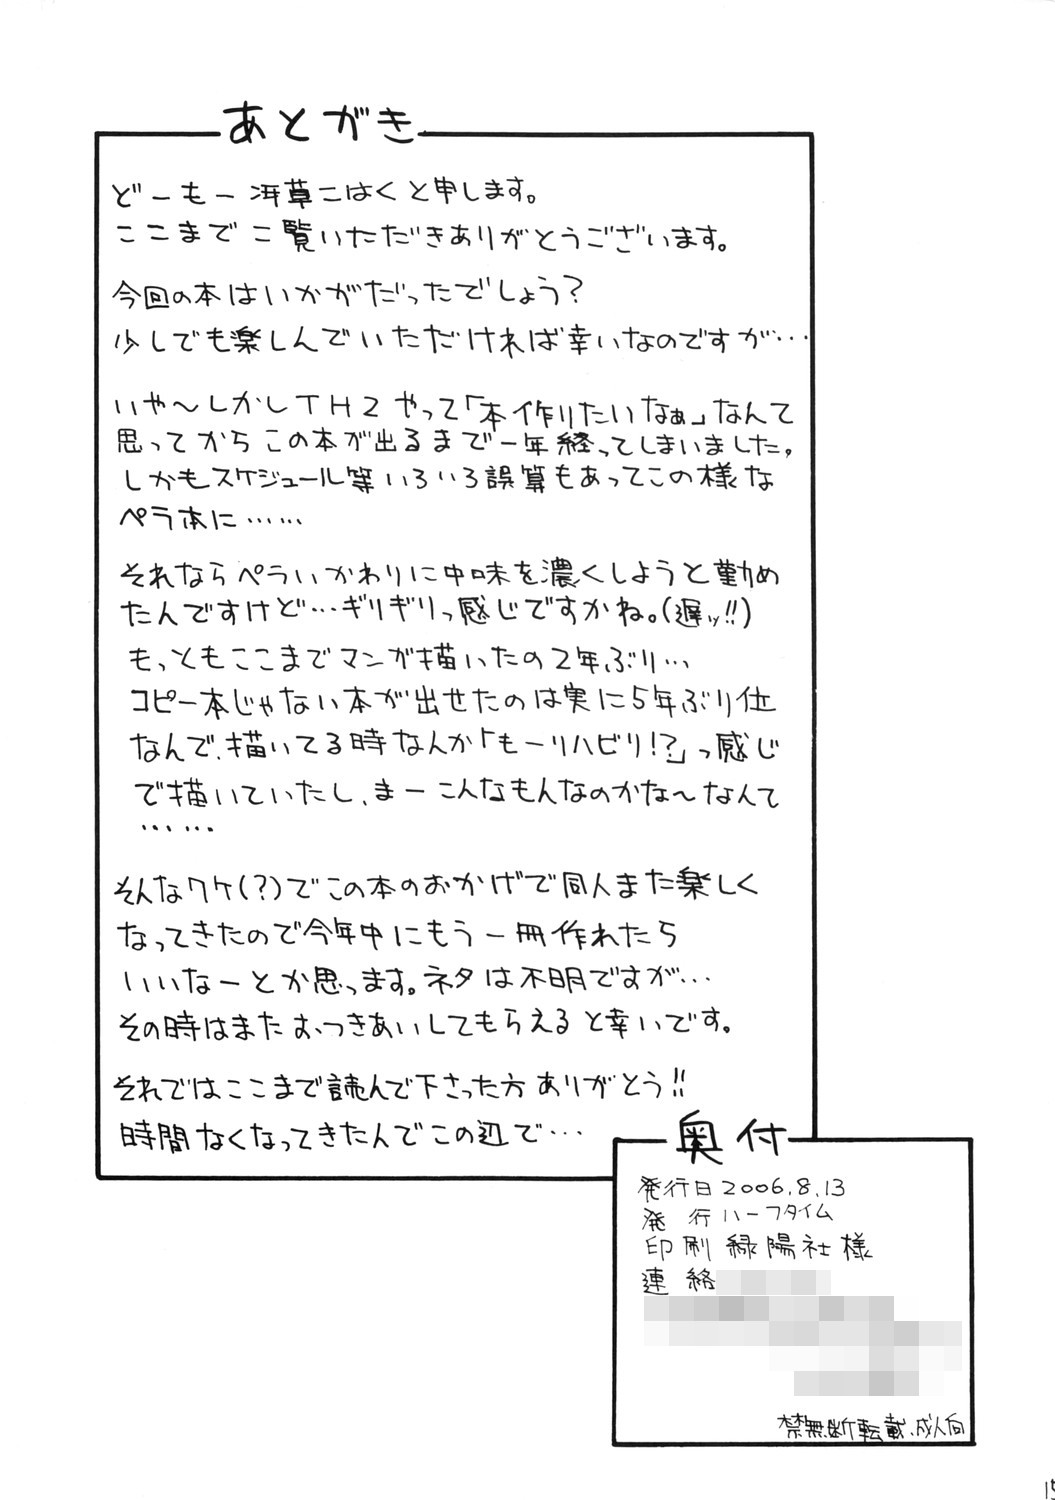 あとがき
どーもー冴草こはくと申します。
ここまでご覧いただきありがとうございます。
今回の本はいかがだったでしょう?
少しでも楽しんでいただければ幸いなのですが…
いや〜しかしTH2やって「本作りたいなぁ」なんて
思ってからこの本が出るまで一年経ってしまいました。
しかもスケジュール等いろいろ誤算もあってこの様な
ペラ本に……
それならペラいかわりに中味を濃くしようと勤め
たんですけど…ギリギリっ感じですかね。(遅ッ!!)
もっともここまでマンガ描いたの2年ぶり…
コピー本じゃない本が出せたのは実に5年ぶり位
なんで、描いてる時なんか「もーリハビリ!?」っ感じ
で描いていたし、まーこんなもんなのかな〜なんて
……
そんなワケ(?)でこの本のおかげで同人また楽しく
なってきたので今年中にもう一冊作れたら
いいなーとか思っます。ネタは不明ですが…
その時はまたおつきあいしてもらえると幸いです。
それではここまで読んで下さった方ありがとう!!
時間なくなってきたんでこの辺で…
奥付
発行日2006.8.13
発行 ハーフタイム
印刷 緑陽社様
連絡
禁無断転載、成人向
15